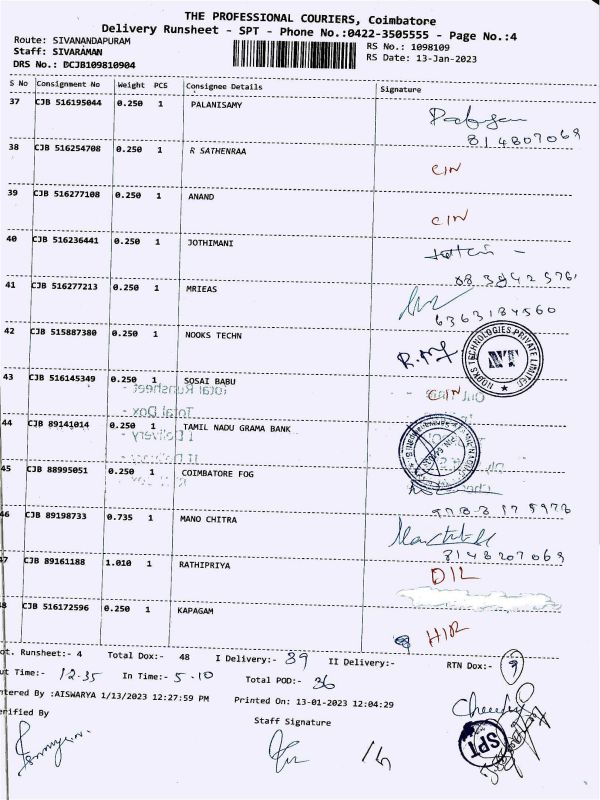 THE PROFESSIONAL COURIERS, Coimbatore
Delivery Runsheet - SPT - Phone No.:0422-3505555 - Page No.:4
Route: SIVANANDAPURAM RS No.: 1098109
Staff: SIVARAMAN RS Date: 13-Jan-2023
DRS No.: DCJB109810904
S No Consignment No Weight PCS Consignee Details Signature
37 CJB 516195044 0.250 1 PALANISAMY
814807069
38 CJB 516254708 0.250 1 R SATHENRAA CIN
39 CJB 516277108 0.250 1 ANAND CIN
40 CJB 516236441 0.250 1 JOTHIMANI
41 CJB 516277213 0.250 1 MRIEAS
6363184560
42 CJB 515887380 0.250 1 NOOKS TECHN
NOOKS TECHNOLOGIES PRIVATE LIMITED
NT
43 CJB 516145349 0.250 1 SOSAI BABU CIN
Total Runsheet
Total Dox -
44 CJB 89141014 0.250 1 TAMIL NADU GRAMA BANK
I Delivery -
II Delivery -
45 CJB 88995051 0.250 1 COIMBATORE FOG
46 CJB 89198733 0.735 1 MANO CHITRA
8148207069
47 CJB 89161188 1.010 1 RATHIPRIYA DIL
48 CJB 516172596 0.250 1 KAPAGAM HIR
ot. Runsheet:- 4 Total Dox:- 48 I Delivery:- 39 II Delivery:- RTN Dox:- 9
ut Time:- 12.35 In Time:- 5.10 Total POD:- 36
ntered By :AISWARYA 1/13/2023 12:27:59 PM Printed On: 13-01-2023 12:04:29
erified By Staff Signature
SPT